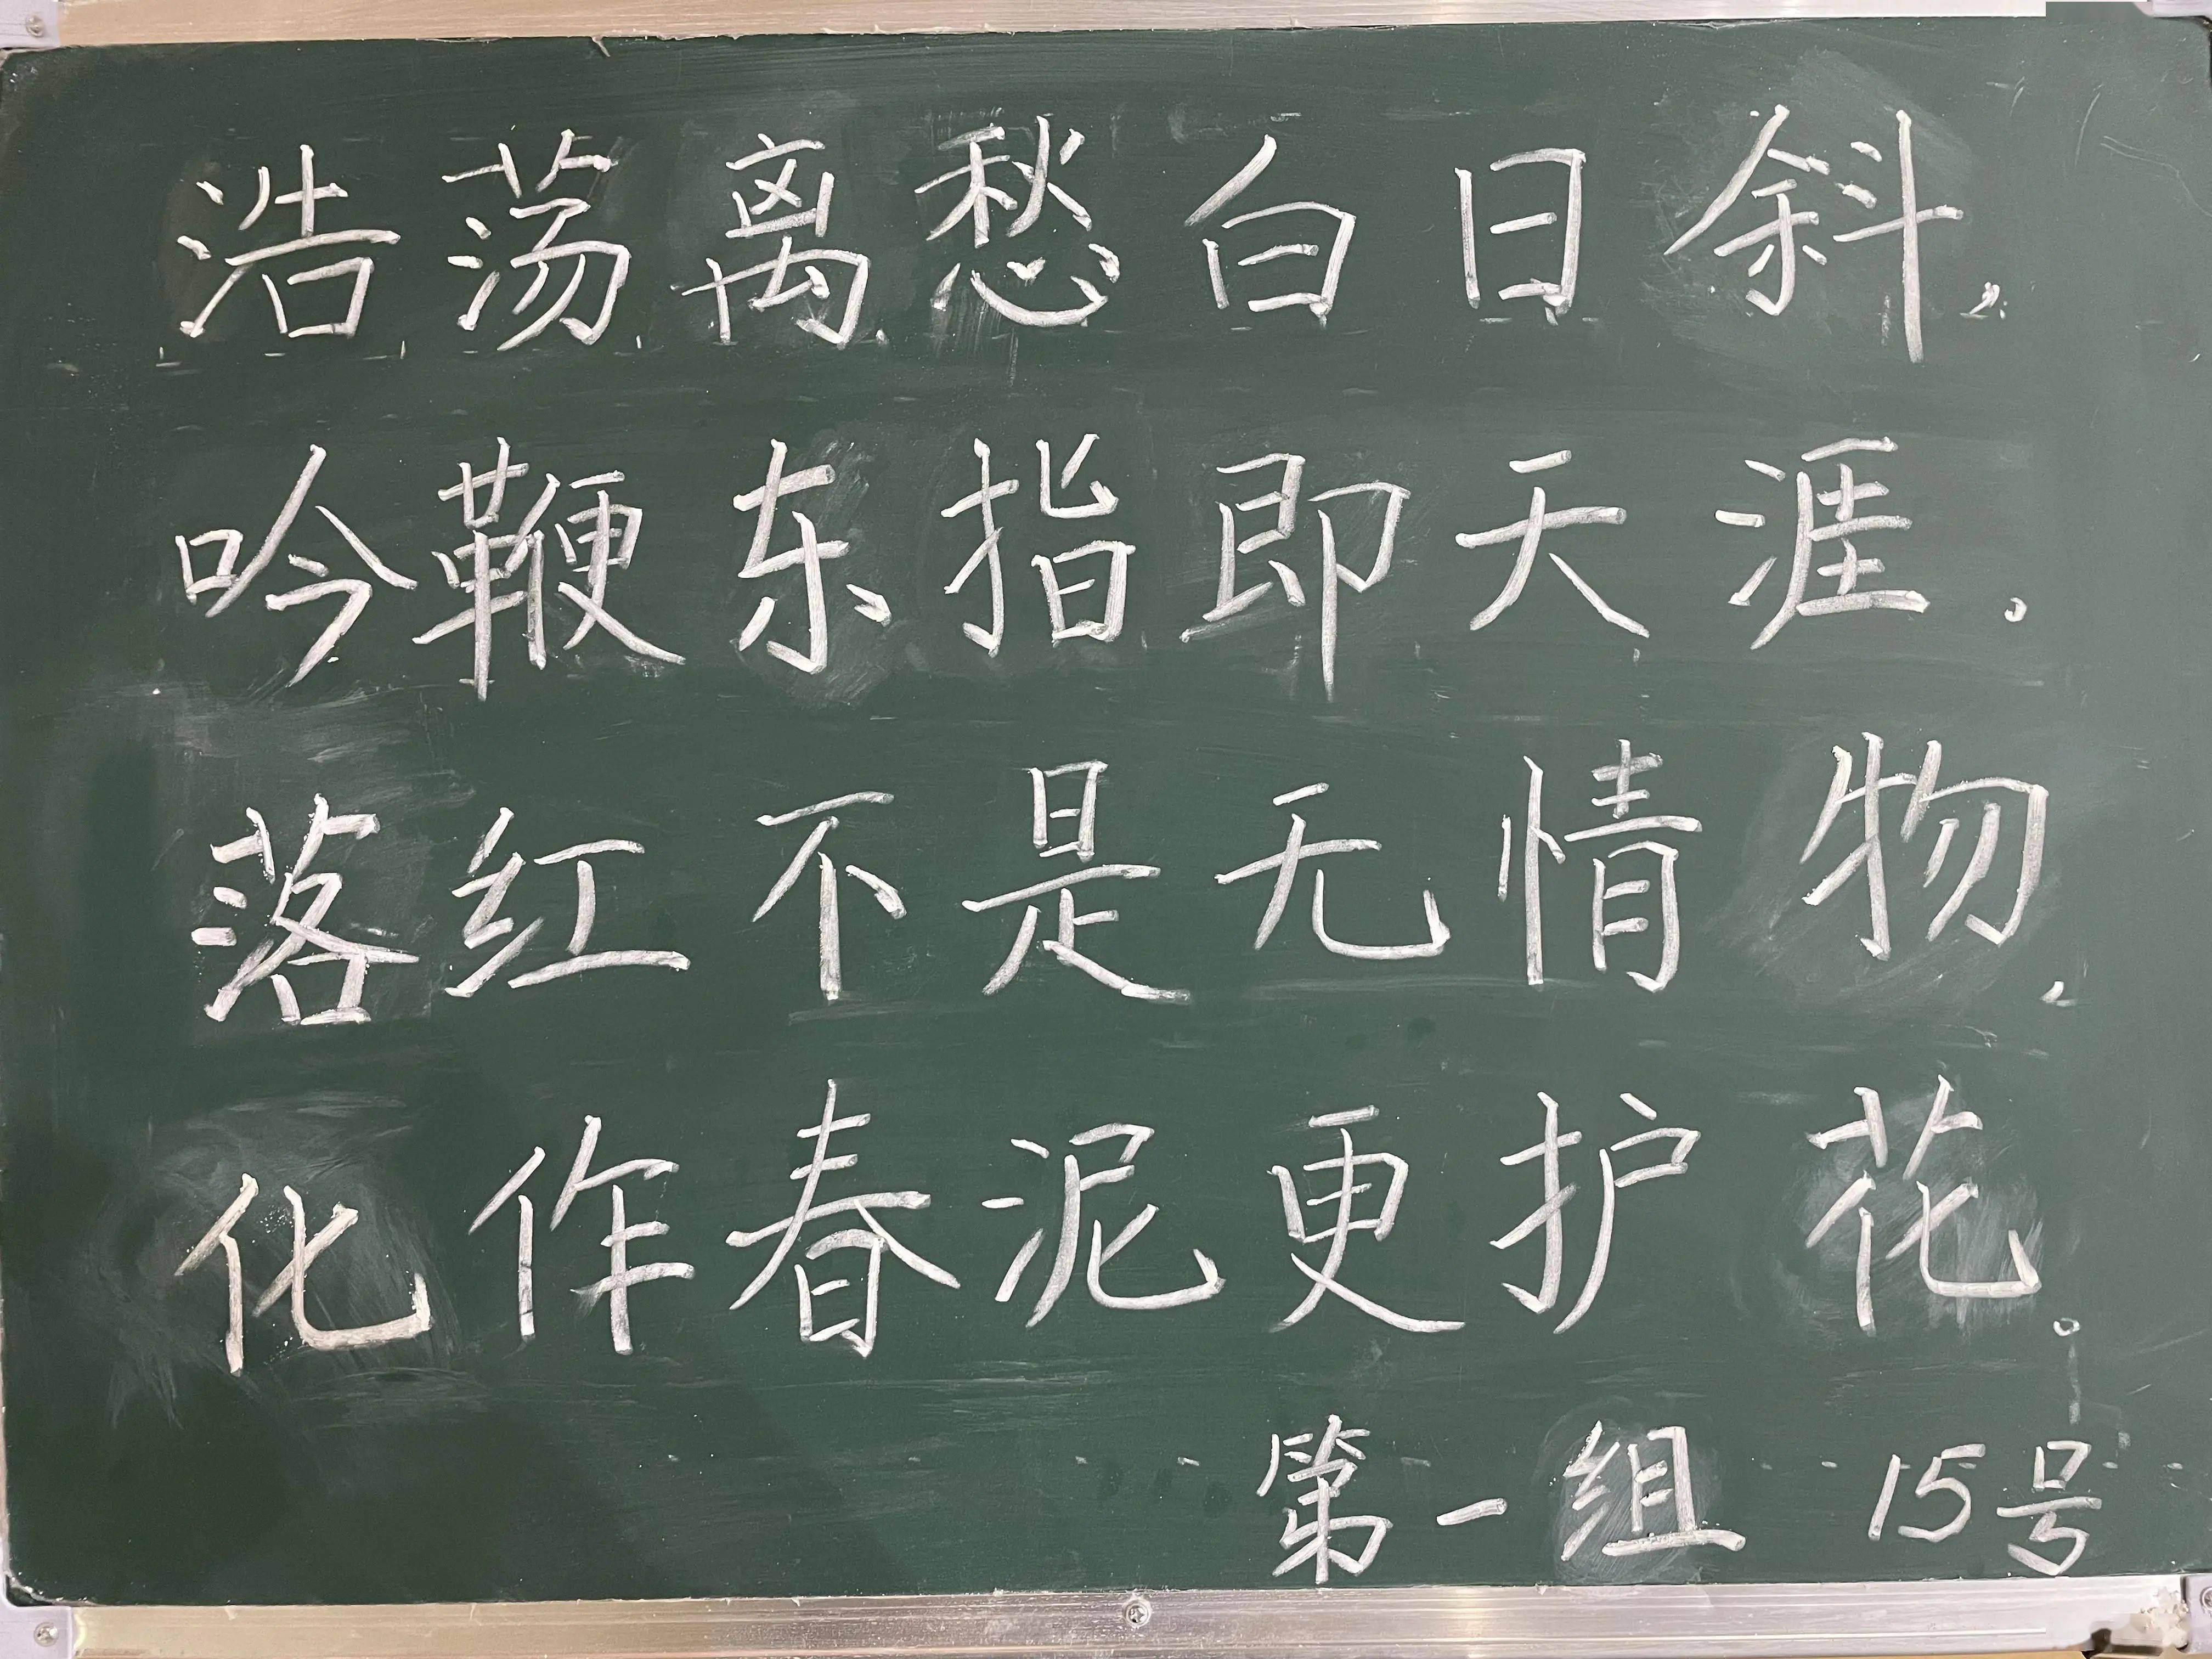 浩荡离愁白日斜，
吟鞭东指即天涯。
落红不是无情物，
化作春泥更护花。
第一组 15号